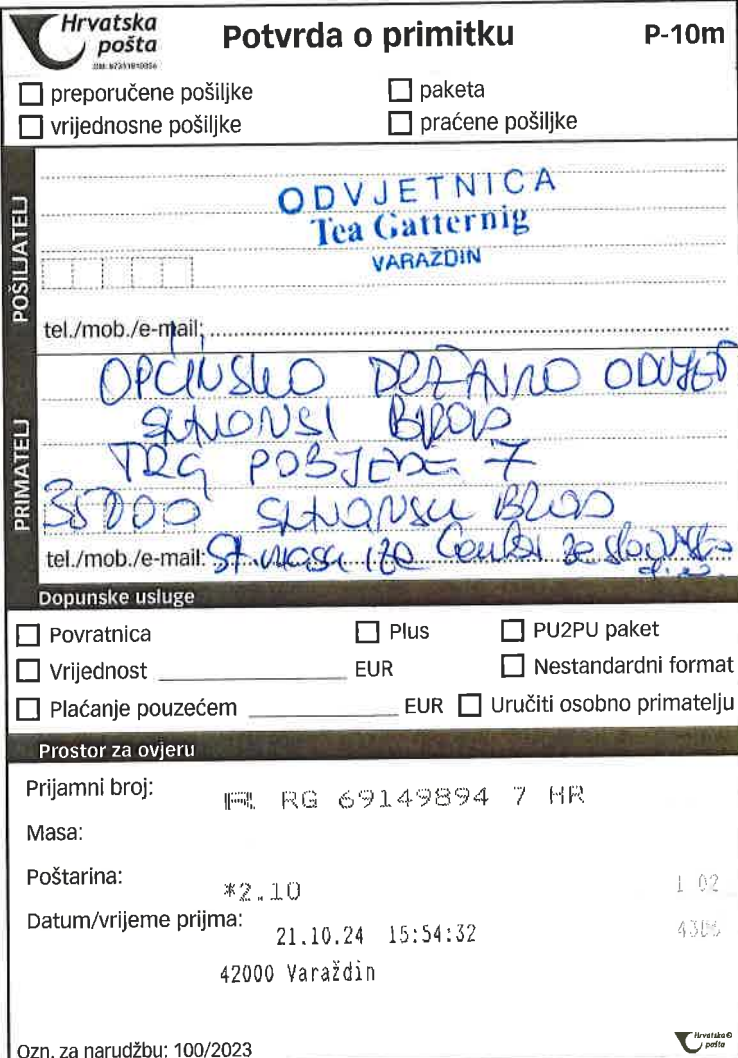 Hrvatska
pošta
Potvrda o primitku
P-10m
preporučene pošiljke
paketa
vrijednosne pošiljke
praćene pošiljke
POŠILJATELJ
ODVJETNICA
Tea Gatternig
VARAŽDIN
tel./mob./e-mail:
PRIMATELJ
OPĆINSKO DRŽAVNO ODVJET
SLAVONSKI BROD
TRG POBJEDE 7
35000 SLAVONSKI BROD
tel./mob./e-mail:
Dopunske usluge
Povratnica
Plus
PU2PU paket
Vrijednost EUR
Nestandardni format
Plaćanje pouzećem EUR
Uručiti osobno primatelju
Prostor za ovjeru
Prijamni broj: R RG 69149894 7 HR
Masa:
Poštarina: *2.10
1 02
Datum/vrijeme prijma: 21.10.24 15:54:32
42000 Varaždin
Ozn. za narudžbu: 100/2023
Hrvatska
pošta